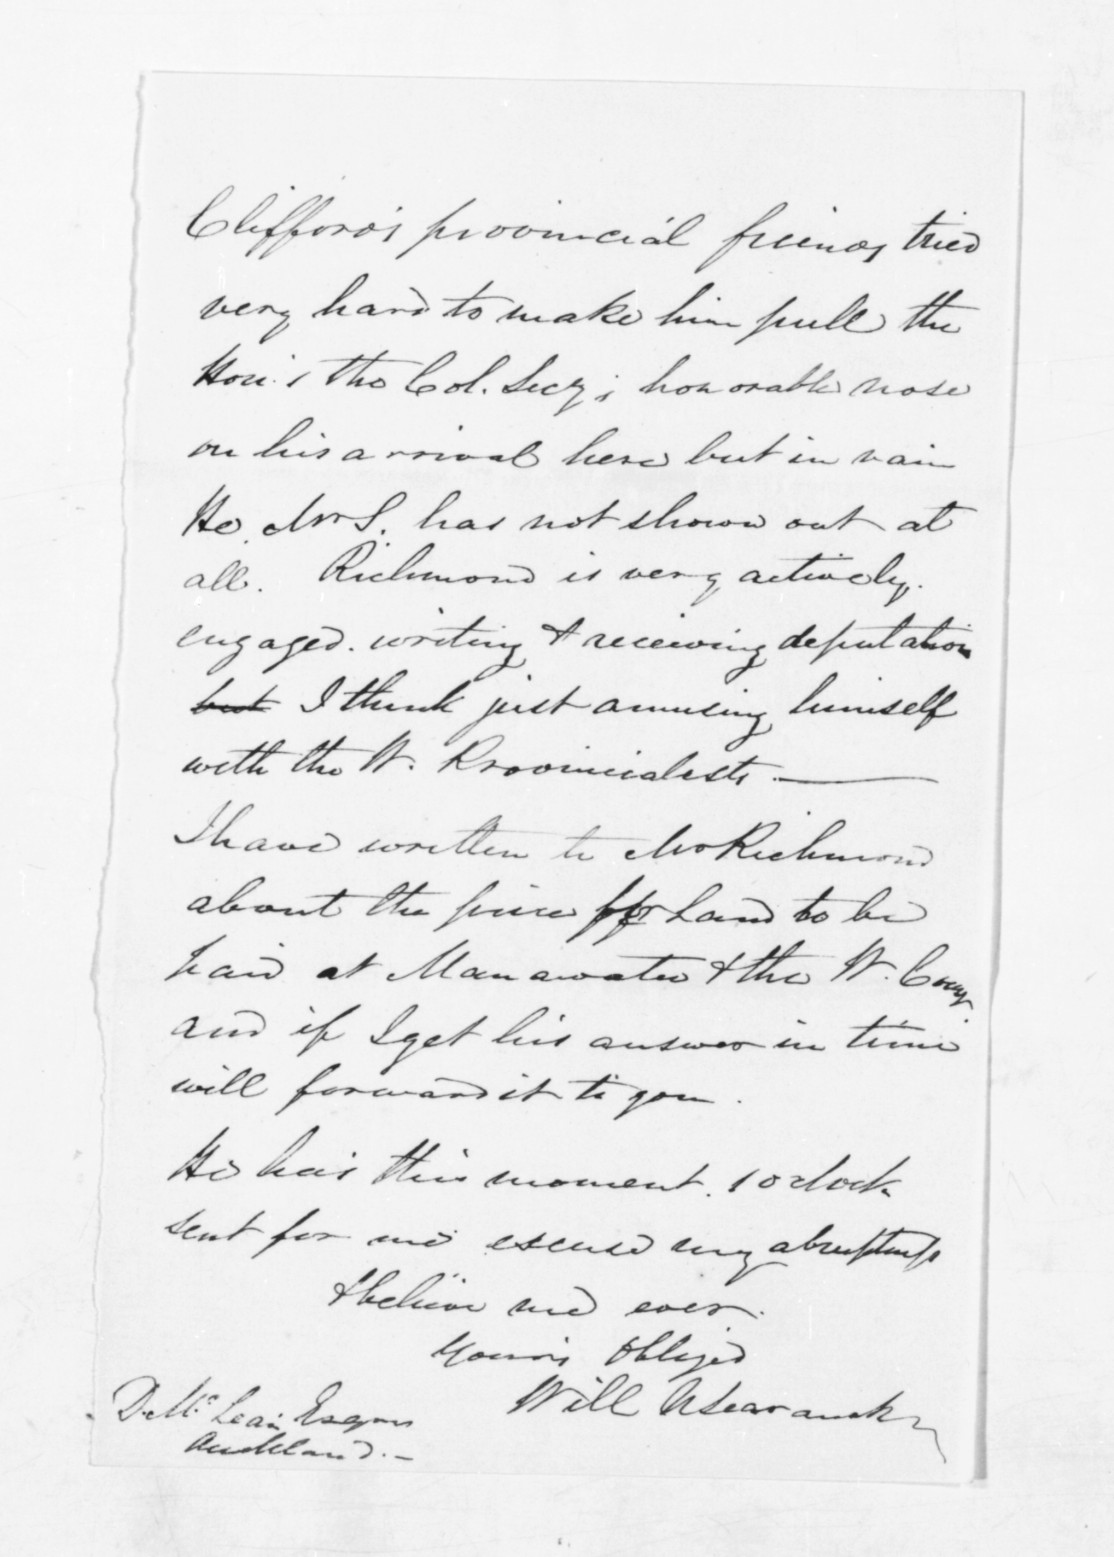 Clifford's provincial friends tried
very hard to make him pull the
Hon. s the Col. Secy; honorable nose
on his arrival here but in vain
He. Mr S. has not shown out at
all. Richmond is very actively.
engaged. writing & receiving deputation
but I think just amusing himself
with the W. Provincialists. —
I have written to Mr Richmond
about the price for Land to be
had at Manawatu & the W. Coy
and if I get his answer in time
will forward it to you.
He has this moment. 1 oclock
sent for me excuse my abruptness
& believe me ever.
Yours obliged
Will
D. McLean Esqre
Auckland. —